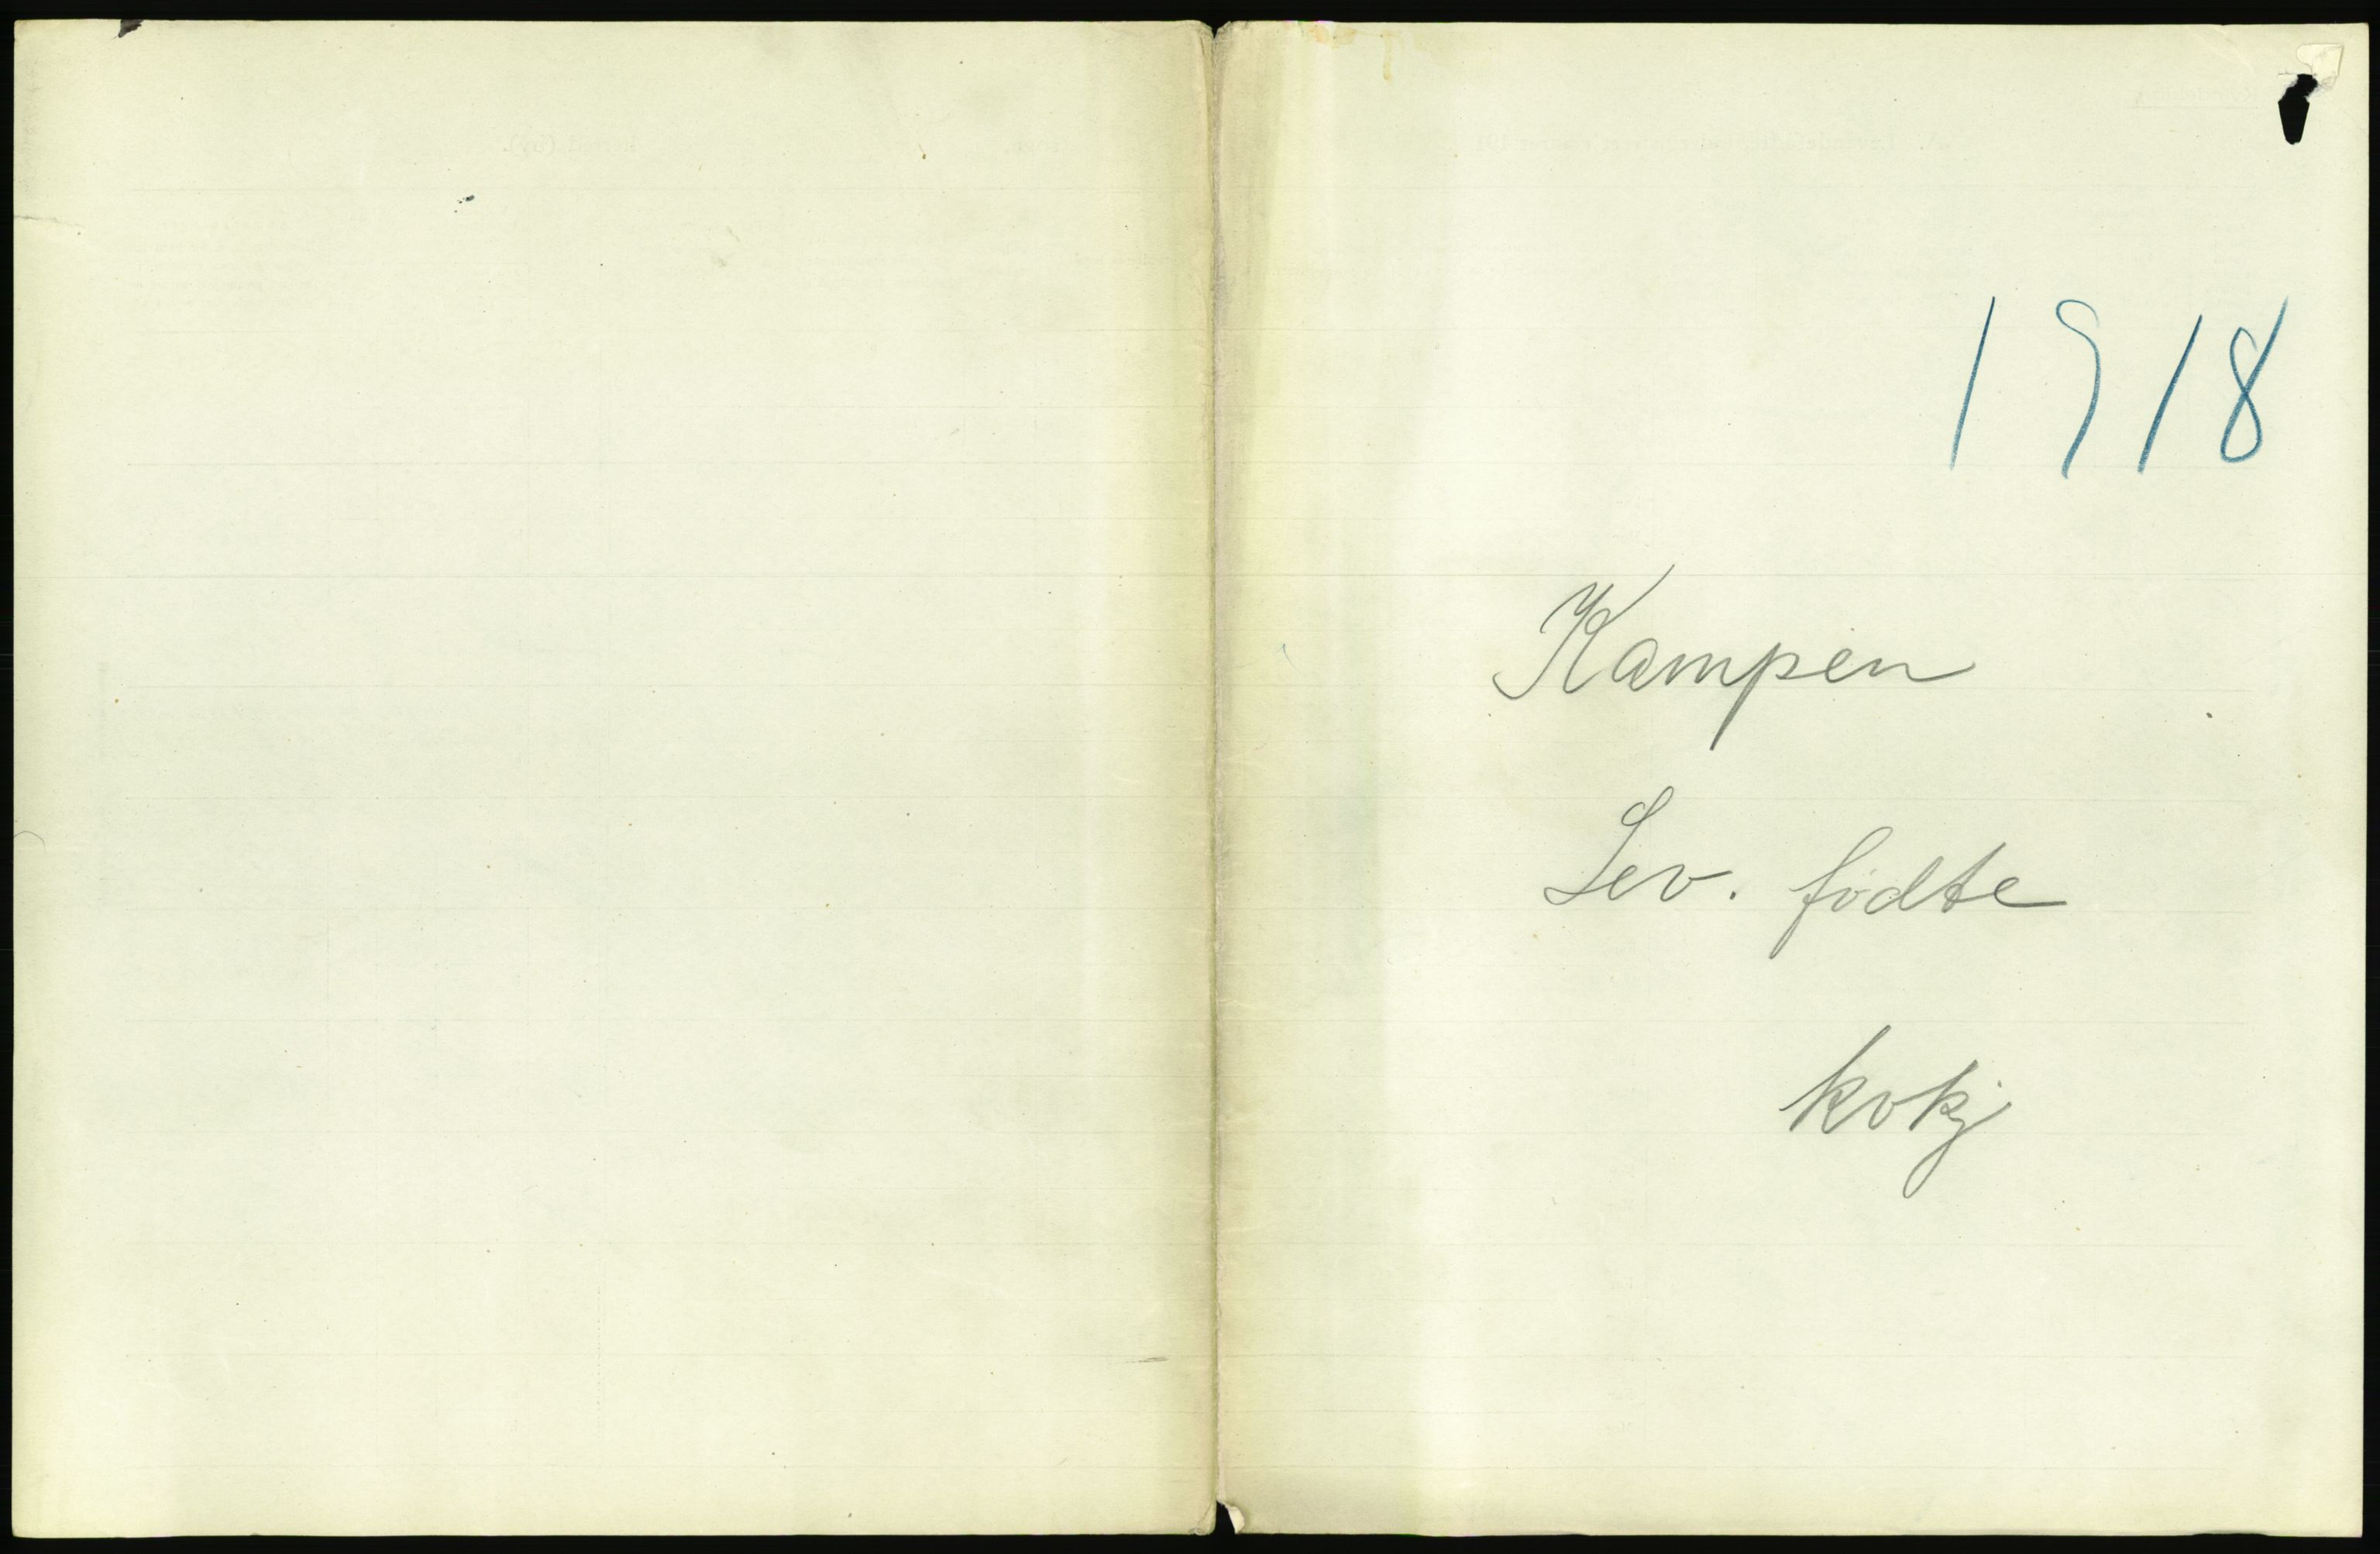 1918
Kampen
Lev. fødte
kvkj